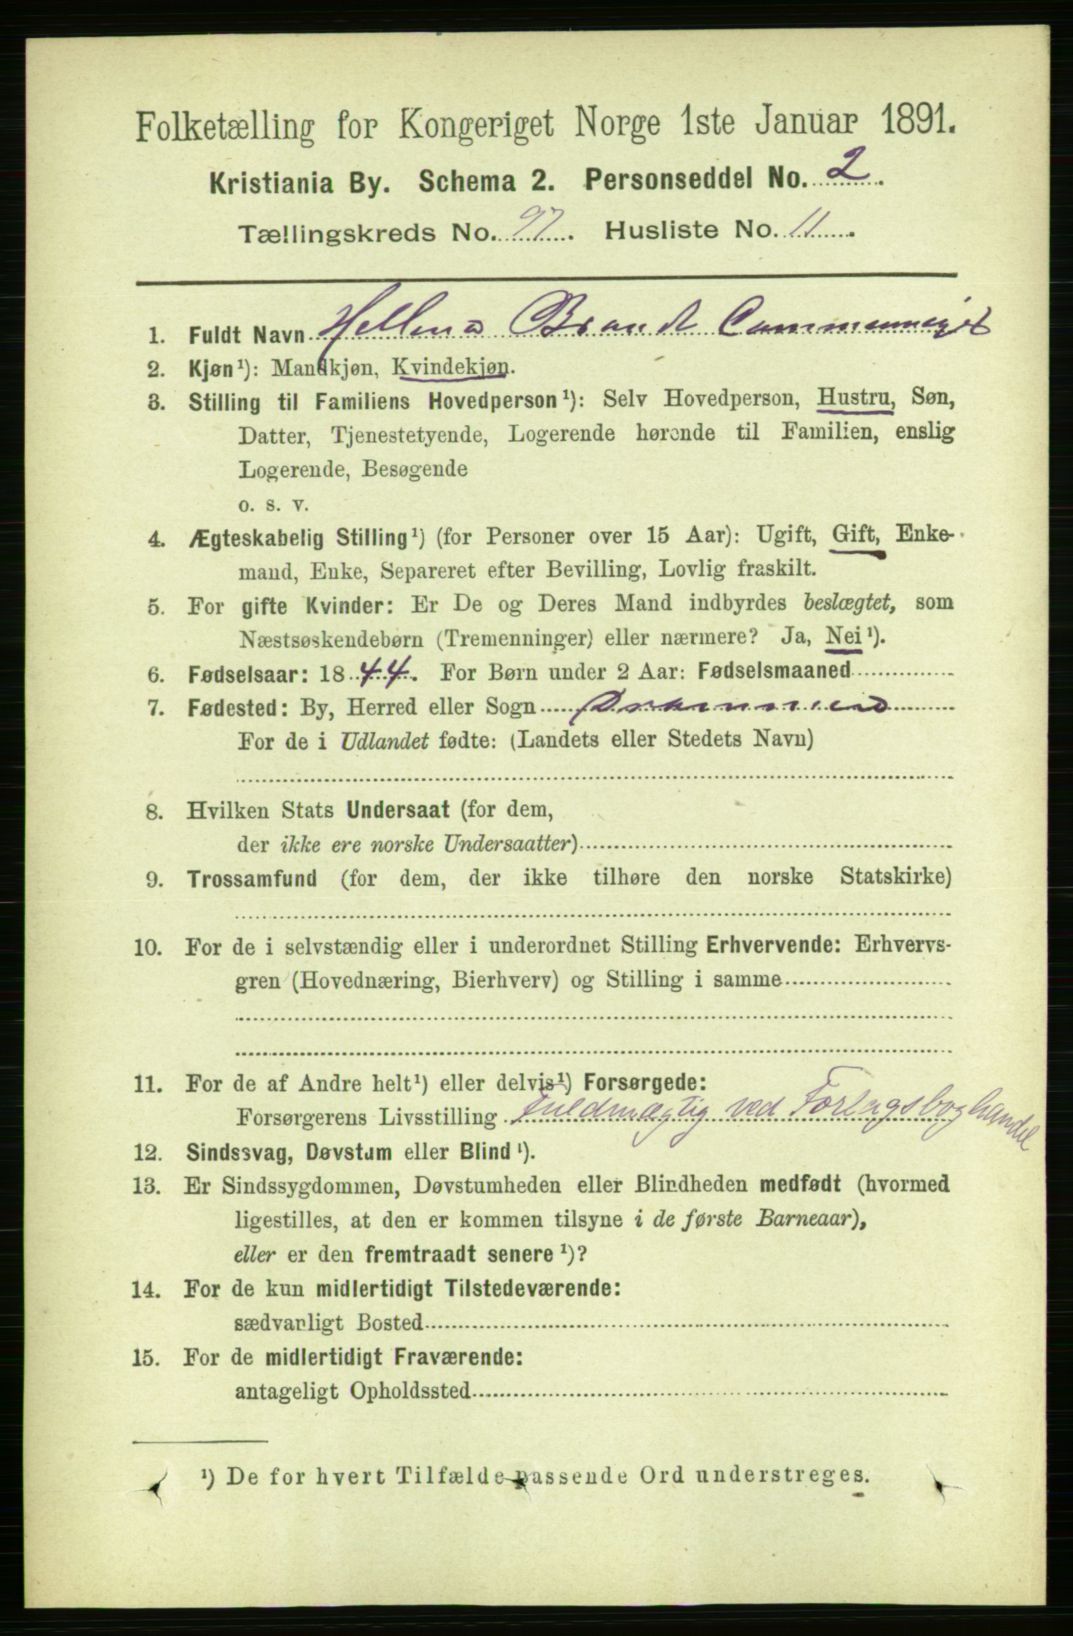 Folketælling for Kongeriget Norge 1ste Januar 1891.
Kristiania By. Schema 2. Personseddel No. 2.
Tællingskreds No. 97. Husliste No. 11.
1. Fuldt Navn Brandt
2. Kjøn¹): Mandkjøn, Kvindekjøn.
3. Stilling til Familiens Hovedperson¹): Selv Hovedperson, Hustru, Søn,
Datter, Tjenestetyende, Logerende hørende til Familien, enslig
Logerende, Besøgende
o. s. v.
4. Ægteskabelig Stilling¹) (for Personer over 15 Aar): Ugift, Gift, Enke-
mand, Enke, Separeret efter Bevilling, Lovlig fraskilt.
5. For gifte Kvinder: Er De og Deres Mand indbyrdes beslægtet, som
Næstsøskendebørn (Tremenninger) eller nærmere? Ja, Nei¹).
6. Fødselsaar: 1844. For Børn under 2 Aar: Fødselsmaaned
7. Fødested: By, Herred eller Sogn Drammen
For de i Udlandet fødte: (Landets eller Stedets Navn)
8. Hvilken Stats Undersaat (for dem,
der ikke ere norske Undersaatter)
9. Trossamfund (for dem, der ikke tilhøre den norske Statskirke)
10. For de i selvstændig eller i underordnet Stilling Erhvervende: Erhvervs-
gren (Hovednæring, Bierhverv) og Stilling i samme
11. For de af Andre helt¹) eller delvis¹) Forsørgede:
Forsørgerens Livsstilling Fuldmægtig ved Forlagsboghandel
12. Sindssvag, Døvstum eller Blind¹).
13. Er Sindssygdommen, Døvstumheden eller Blindheden medfødt (hvormed
ligestilles, at den er kommen tilsyne i de første Barneaar),
eller er den fremtraadt senere¹)?
14. For de kun midlertidigt Tilstedeværende:
sædvanligt Bosted
15. For de midlertidigt Fraværende:
antageligt Opholdssted
¹) De for hvert Tilfælde passende Ord understreges.